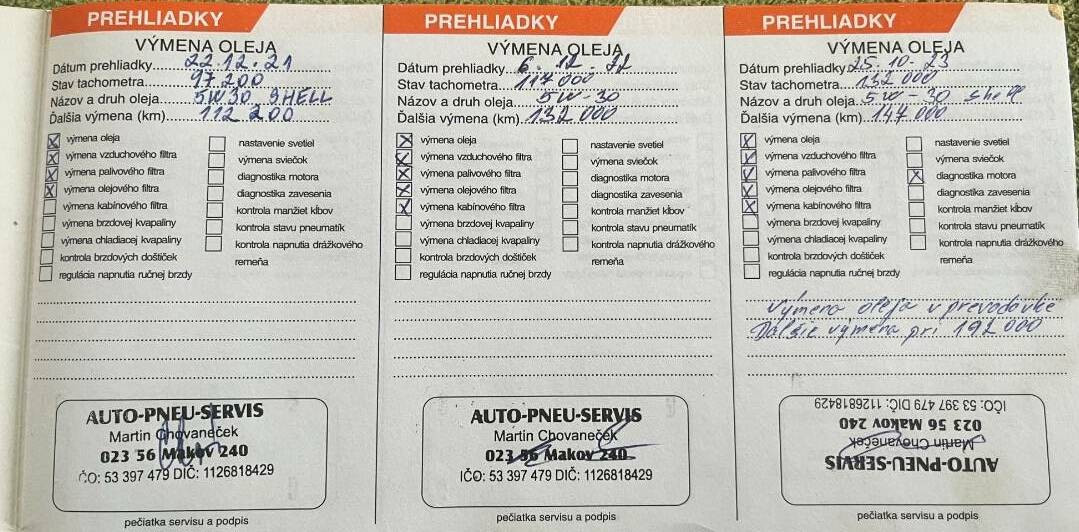 PREHLIADKY
VÝMENA OLEJA
Dátum prehliadky 22.12.21
Stav tachometra 97 200
Názov a druh oleja 5W30 SHELL
Ďalšia výmena (km) 112 200
výmena oleja
výmena vzduchového filtra
výmena palivového filtra
výmena olejového filtra
výmena kabínového filtra
výmena brzdovej kvapaliny
výmena chladiacej kvapaliny
kontrola brzdových doštičiek
regulácia napnutia ručnej brzdy
nastavenie svetiel
výmena sviečok
diagnostika motora
diagnostika zavesenia
kontrola manžiet kĺbov
kontrola stavu pneumatík
kontrola napnutia drážkového
remeňa
AUTO-PNEU-SERVIS
Martin Chovaneček
023 56 Makov 240
IČO: 53 397 479 DIČ: 1126818429
pečiatka servisu a podpis
PREHLIADKY
VÝMENA OLEJA
Dátum prehliadky 6. 12. 22
Stav tachometra 117 000
Názov a druh oleja 5W-30
Ďalšia výmena (km) 132 000
výmena oleja
výmena vzduchového filtra
výmena palivového filtra
výmena olejového filtra
výmena kabínového filtra
výmena brzdovej kvapaliny
výmena chladiacej kvapaliny
kontrola brzdových doštičiek
regulácia napnutia ručnej brzdy
nastavenie svetiel
výmena sviečok
diagnostika motora
diagnostika zavesenia
kontrola manžiet kĺbov
kontrola stavu pneumatík
kontrola napnutia drážkového
remeňa
AUTO-PNEU-SERVIS
Martin Chovaneček
023 56 Makov 240
IČO: 53 397 479 DIČ: 1126818429
pečiatka servisu a podpis
PREHLIADKY
VÝMENA OLEJA
Dátum prehliadky 25.10.23
Stav tachometra 132 000
Názov a druh oleja 5W-30 shell
Ďalšia výmena (km) 147 000
výmena oleja
výmena vzduchového filtra
výmena palivového filtra
výmena olejového filtra
výmena kabínového filtra
výmena brzdovej kvapaliny
výmena chladiacej kvapaliny
kontrola brzdových doštičiek
regulácia napnutia ručnej brzdy
nastavenie svetiel
výmena sviečok
diagnostika motora
diagnostika zavesenia
kontrola manžiet kĺbov
kontrola stavu pneumatík
kontrola napnutia drážkového
remeňa
Výmena oleja v prevodovke
Ďalšie výmena pri 192 000
AUTO-PNEU-SERVIS
Martin Chovaneček
023 56 Makov 240
IČO: 53 397 479 DIČ: 1126818429
pečiatka servisu a podpis